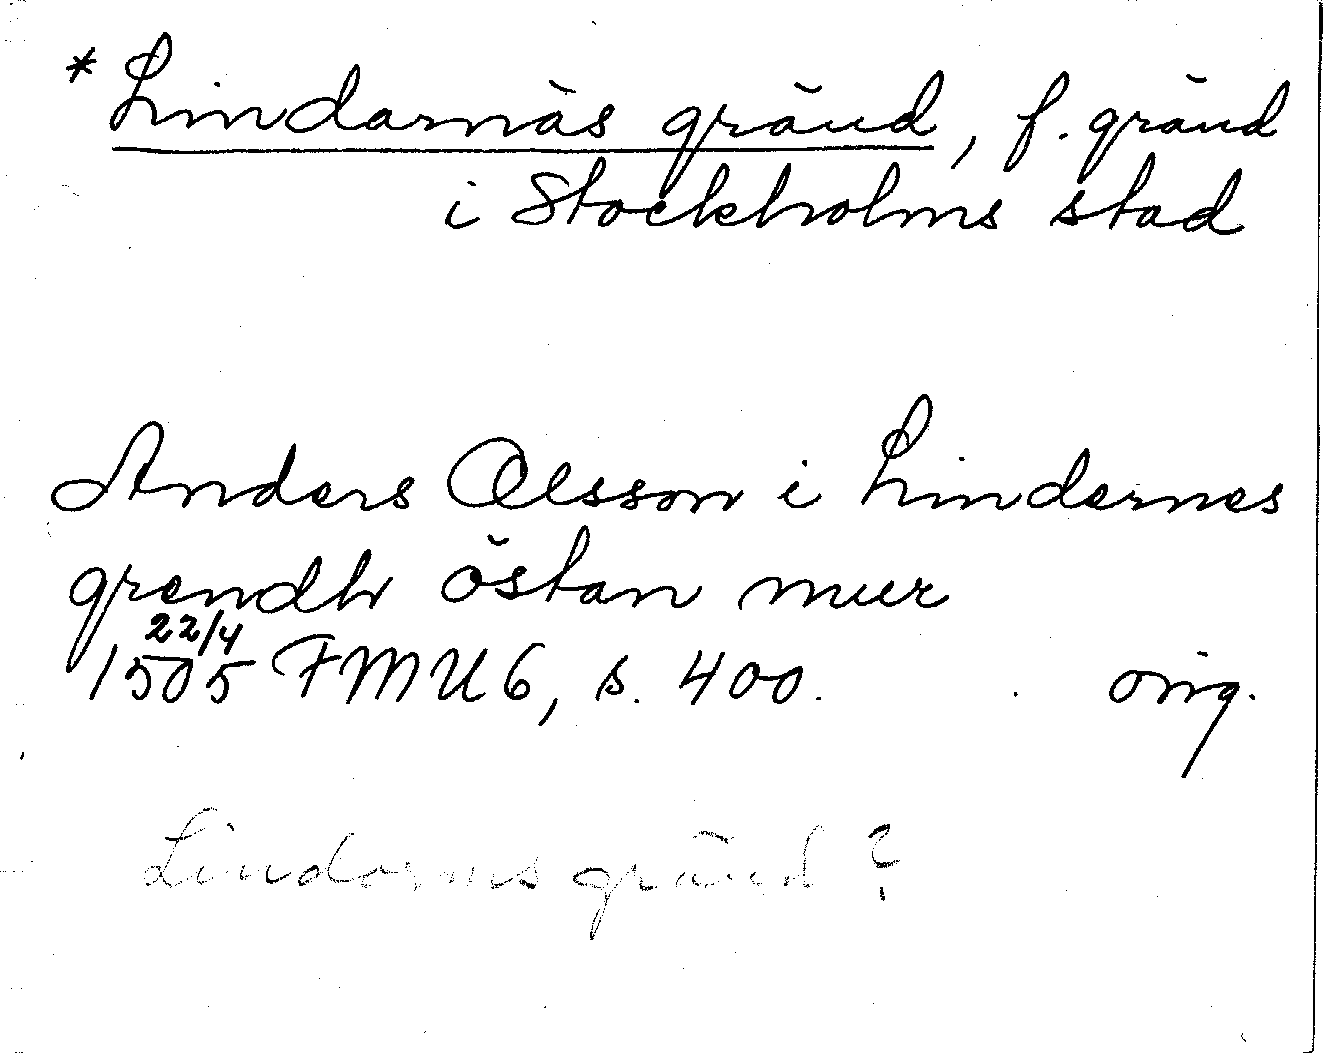 * Lindarnäs gränd, f. gränd
i Stockholms stad
Anders Olsson i Lindernes
grendh östan mur
22/4
1505 FMU 6, s. 400. orig.
Lindormsgränd?